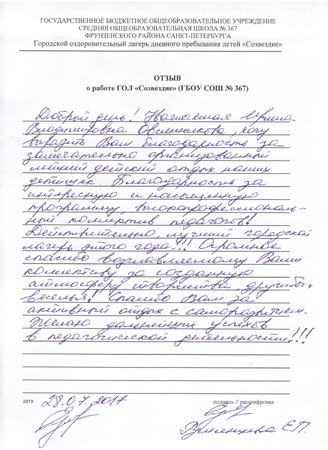 ГОСУДАРСТВЕННОЕ БЮДЖЕТНОЕ ОБЩЕОБРАЗОВАТЕЛЬНОЕ УЧРЕЖДЕНИЕ
СРЕДНЯЯ ОБЩЕОБРАЗОВАТЕЛЬНАЯ ШКОЛА № 367
ФРУНЗЕНСКОГО РАЙОНА САНКТ-ПЕТЕРБУРГА
Городской оздоровительный лагерь дневного пребывания детей «Созвездие»
ОТЗЫВ
о работе ГОЛ «Созвездие» (ГБОУ СОШ № 367)
Добрый день! Уважаемая Ирина
Владимировна, хочу
выразить Вам благодарность за
замечательно организованный
летний детский отдых наших
детишек. Благодарность за
интересную и насыщенную
программу, высокопрофессиональ-
ной коллектив педагогов!
Действительно, лучший городской
лагерь этого года!!! Огромное
спасибо возглавляемому Вами
коллективу за созданную
атмосферу творчества, дружбы,
веселья! Спасибо Вам за
активный отдых с саморазвитием.
Желаю дальнейших успехов
в педагогической деятельности!!!
дата 28.07.2017 подпись / расшифровка